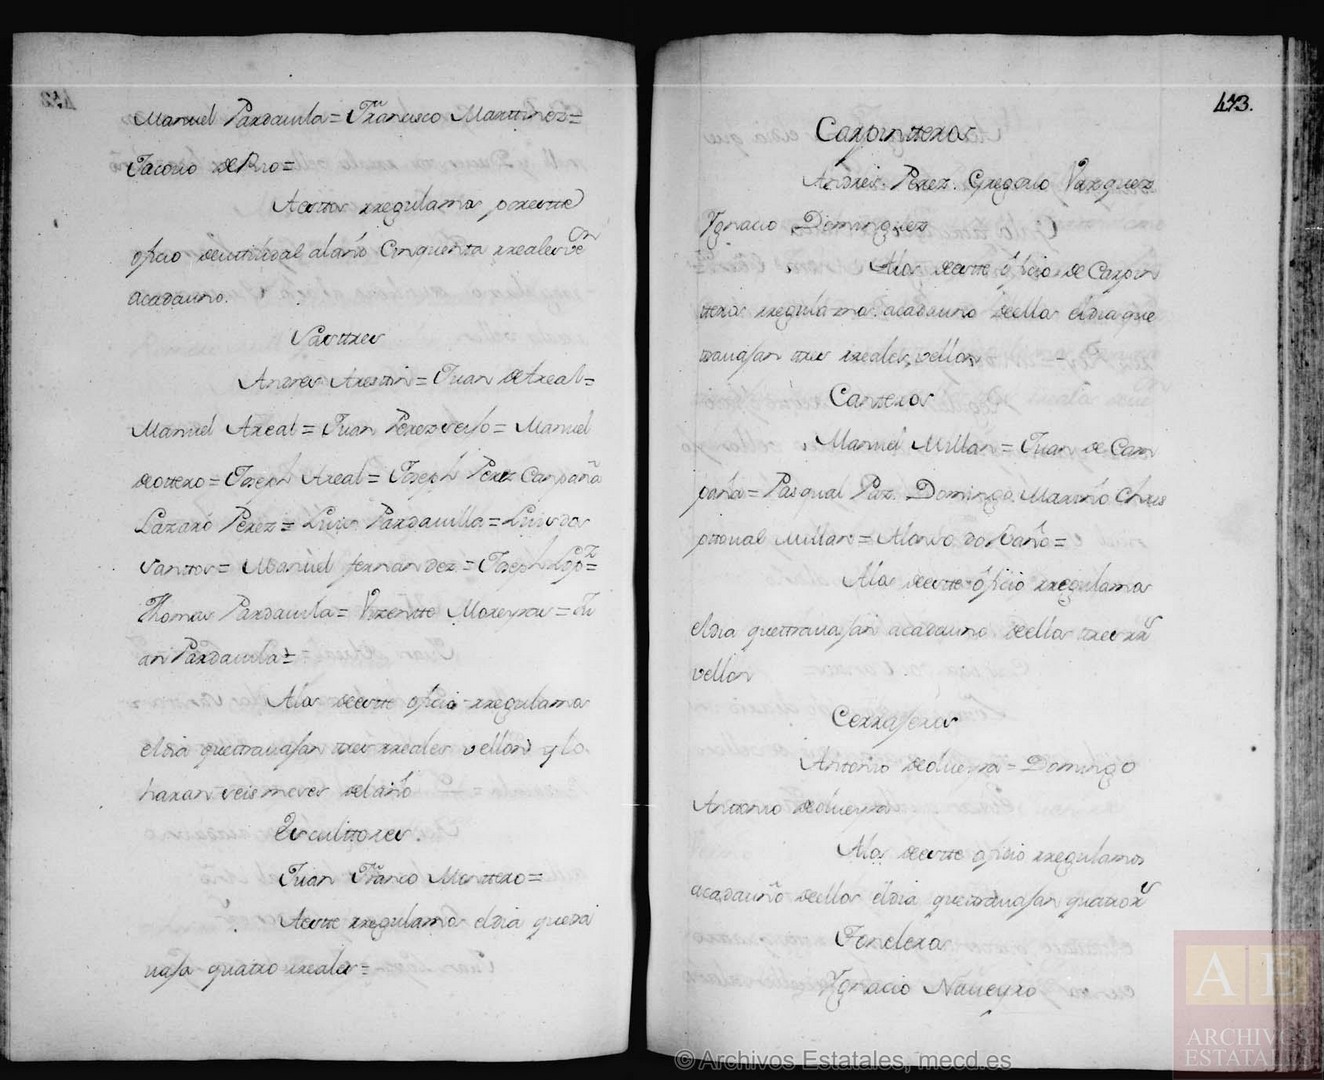 Manuel Pardauila = Franᶜᵒ Marttinez =
Jacovo de Rio =
A estos rregulamos por este
oficio deutilidad alaño Cinquenta rreales vᵒⁿ
acadauno.
Sastres
Andres = Juan de Areal =
Manuel Areal = Juan Perez viejo = Manuel
de ottero = Joseph Areal = Joseph Perez Campaña
Lazaro Perez = Luis Pardauilla = Luis dos
santtos = Manuel fernandez = Joseph Lopᶻ =
Thomas Pardauila = Vizentte Moreyra = Ju
an Pardauila =
Alos deeste oficio rregulamos
eldia quettrauajan tres rreales vellon ylo
haran seis meses delaño
Escultores.
Juan Franco Monttero =
Aeste rregulamos eldia quetra
uaja quatro rreales =
473.
Carpintteros
Andres Perez. Gregorio Vazquez
Ygnacio Dominguez
Alos deeste oficio de Carpin
tteros rregulamos acadauno deellos eldia que
trauajan tres rreales vellon
Cantteros
Manuel Millan = Juan de Cam
paña = Pasqual Paz. Domingo Mariño Chris
ptoual Millan = Alonso do Baño =
Alos deeste oficio rregulamos
eldia quettrauajan acadauno deellos tres rrˢ
vellon
Cerrajeros
Antonio deolueyra = Domingo
Anttonio deolueyra
Alos deeste oficio rregulamos
acadauno deellos eldia quettrauajan quatro rˢ
Toneleros
Ygnacio Naueyro
© Archivos Estatales, mecd.es
AE
ARCHIVOS
ESTATALES